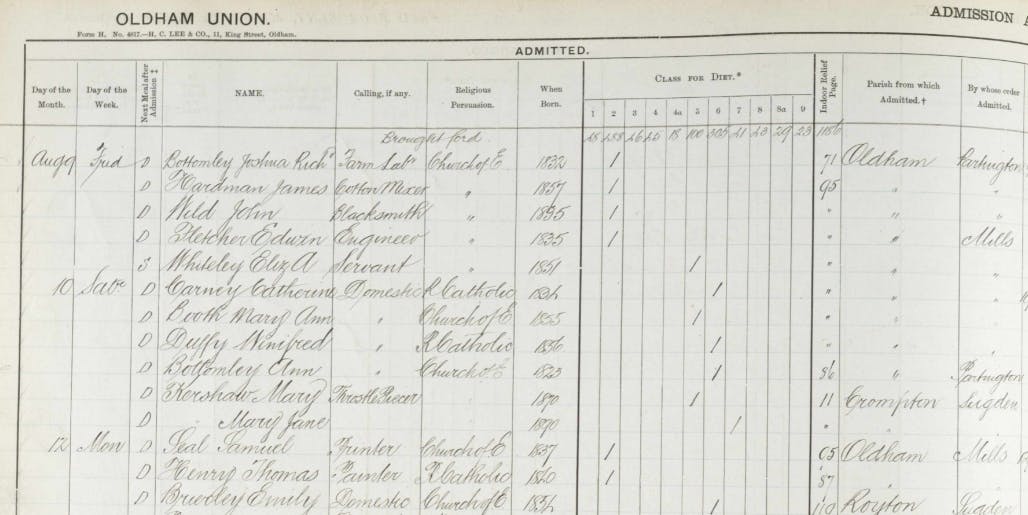 OLDHAM UNION.
ADMISSION A
Form H. No. 4617.—H. C. LEE & CO., 11, King Street, Oldham.
ADMITTED.
Day of the Month. Day of the Week. Next Meal after Admission ‡ NAME. Calling, if any. Religious Persuasion. When Born. CLASS FOR DIET.* Indoor Relief Page. Parish from which Admitted.† By whose order Admitted.
1 2 3 4 4a 5 6 7 8 8a 9
Brought ford 18 100 29 23 1186
Aug 9 Frid D Bottomley Joshua Rich^d Farm Lab^r Church of E 1832 / 71 Oldham Partington
D Hardman James Cotton Mixer " 1857 / 95 " "
D Wild John Blacksmith " / " " "
D Fletcher Edwin Engineer " 1835 / " " Mills
S Whiteley Eliz A Servant " 1851 / " " "
10 D Carney Catherine Domestic R Catholic / " "
D Booth Mary Ann " Church of E 1835 / " "
D Duffy Winifred " R Catholic 1836 / " "
D Bottomley Ann " Church of E 1823 / 86 " Partington
D Kershaw Mary Throstle Piecer 1870 / 11 Crompton Sugden
D " Mary Jane 1890 / "
12 Mon D Seal Samuel Church of E 1837 / 65 Oldham Mills
D Henry Thomas Painter R Catholic 1860 / 87
D Brierley Emily Domestic Church of E / 110 Royton Sugden